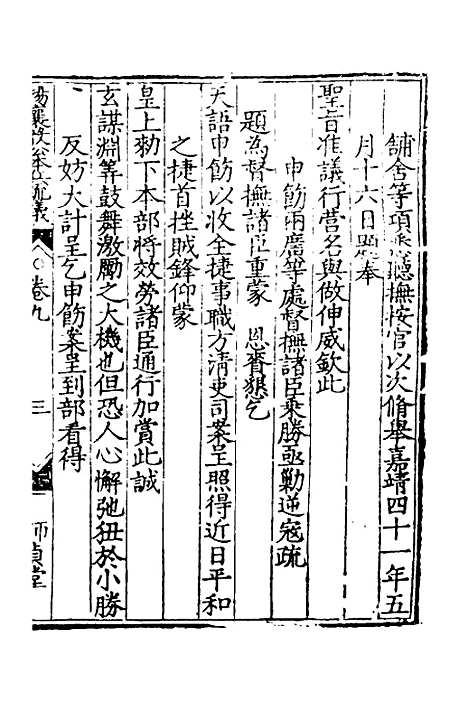 舖舍等項悉聽撫按官以次脩舉嘉靖四十一年五
月十六日題奉
聖旨准議行營名與做伸威欽此
申飭兩廣等處督撫諸臣乘勝亟勦逆寇疏
題為督撫諸臣重蒙 恩賚懇乞
天語申飭以收全捷事職方清吏司案呈照得近日平和
之捷首挫賊鋒仰蒙
皇上勑下本部將效勞諸臣通行加賞此誠
玄謀淵筭鼓舞激勵之大機也但恐人心懈弛狃於小勝
反妨大計呈乞申飭案呈到部看得
楊襄毅公本兵疏議 卷九 三 師貞堂